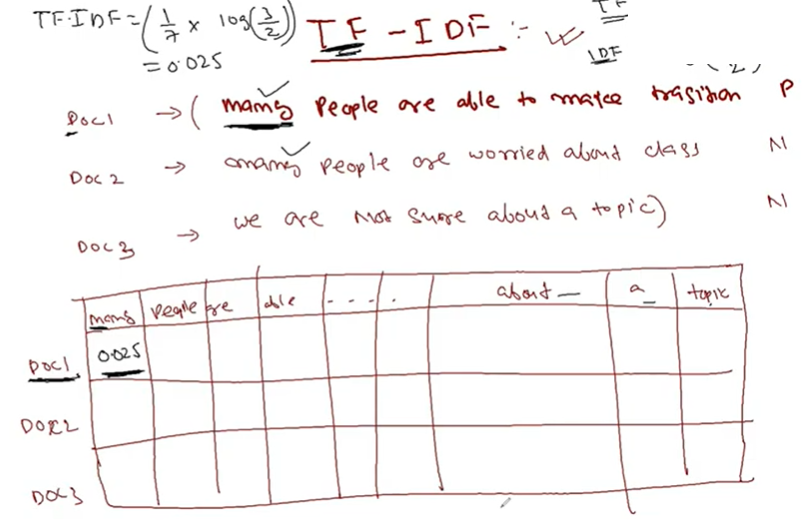 TF·IDF = (1/7 × log(3/2))
= 0.025
TF - IDF :-
TF
IDF
Doc1 → ( many People are able to make trasition P
DOC 2 → many people are worried about class N
DOC3 → we are Not sure about a topic) N
many people are able - - - . about — a topic
DOC1 0.025
DOC2
DOC3